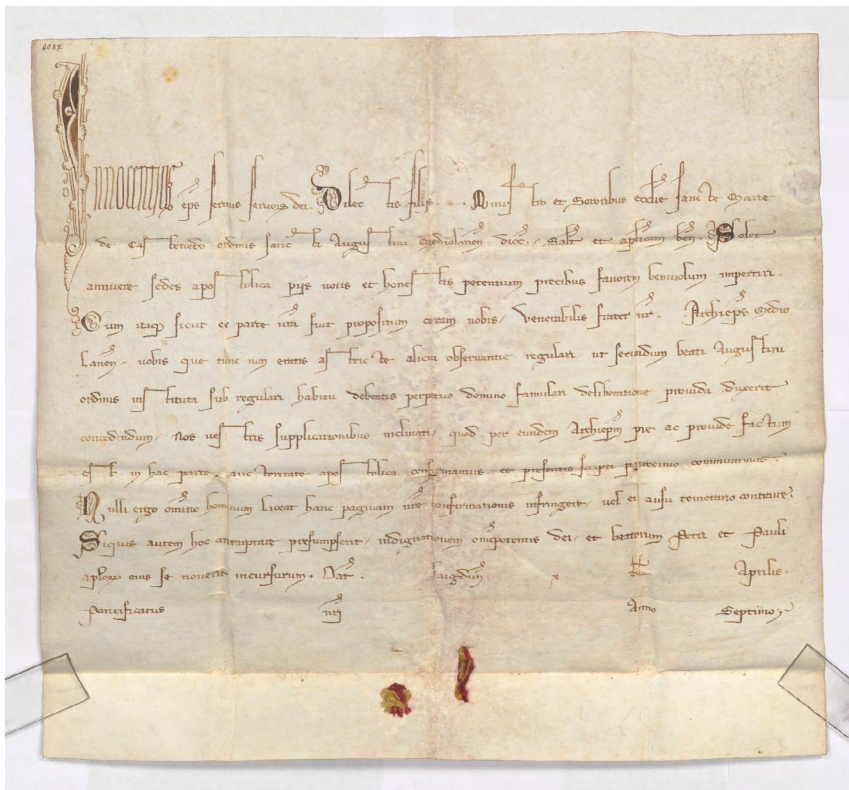 4087
INNOCENTIUS eps servus servorum dei. Dilectis filiis .. Ministro et Sororibus ecclie sancte Marie
de Castenedo ordinis sancti Augustini Mediolanen dioc. Salt et aplicam ben. Solet
annuere sedes apostolica piis votis et honestis petentium precibus favorem benivolum impertiri.
Cum itaque sicut ex parte vra fuit propositum coram nobis, venerabilis frater nr .. Archieps Medio
lanen. vobis que tunc non eratis astricte alicui observantie regulari ut secundum beati Augustini
ordinis instituta sub regulari habitu debeatis perpetuo domino famulari deliberatione provida duxerit
concedendum, Nos vestris supplicationibus inclinati, quod per eundem Archiepm pie ac provide factum
est in hac parte, auctoritate apostolica confirmamus et presentis scripti patrocinio communimus.
Nulli ergo omnino hominum liceat hanc paginam nre confirmationis infringere, vel ei ausu temerario contraire.
Siquis autem hoc attemptare presumpserit, indignationem omnipotentis dei, et beatorum Petri et Pauli
aplorum eius se noverit incursurum. Dat Lugdun. x kl Aprilis.
Pontificatus nri Anno Septimo.